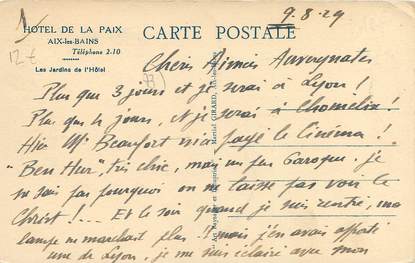 HOTEL DE LA PAIX
AIX-les-BAINS
Téléphone 2-10
Les Jardins de l'Hôtel
CARTE POSTALE
9.8.29
12 €
Chers Aimés Auvergnats
Plus que 3 jours et je serai à Lyon !
Plus que 4 jours, et je serai à Chomelix !
Hier Mr Beaufort m'a payé le Cinéma !
"Ben Hur", très chic, mais un peu baroque. je
ne sais pas pourquoi on ne laisse pas voir le
Christ !... Et le soir quand je suis rentré, ma
lampe ne marchait plus !! mais j'en avais apporté
une de Lyon, je me suis éclairé avec mon
Martial GIRARD, Aix-les-